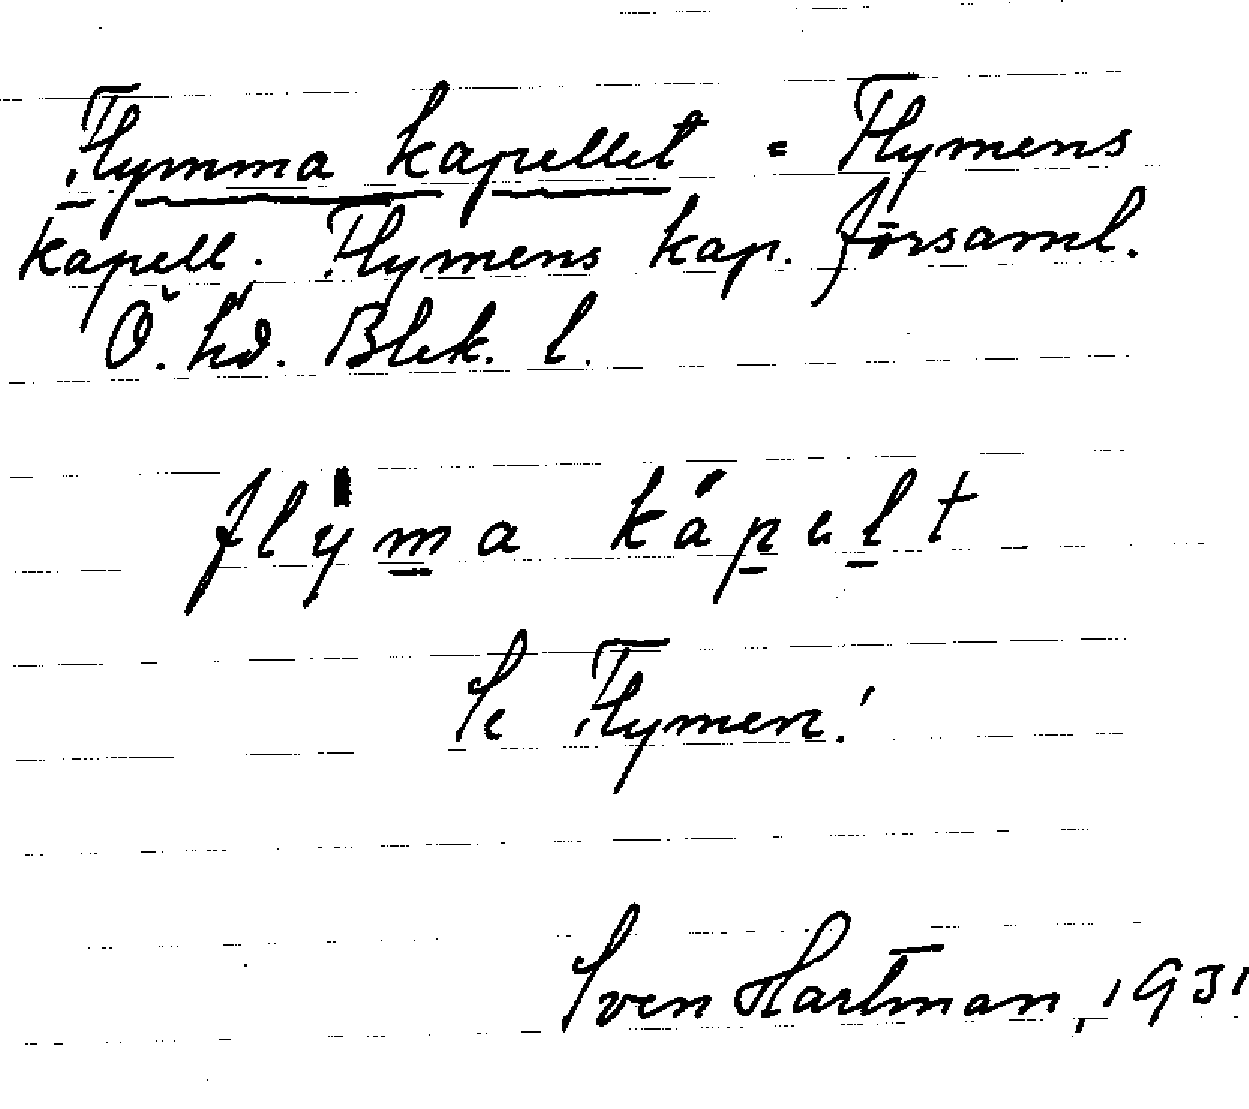 Flymma kapellet = Flymens
kapell. Flymens kap. församl.
Ö. hd. Blek. l.
flýma kápelt
Se Flymen!
Sven Hartman, 1931